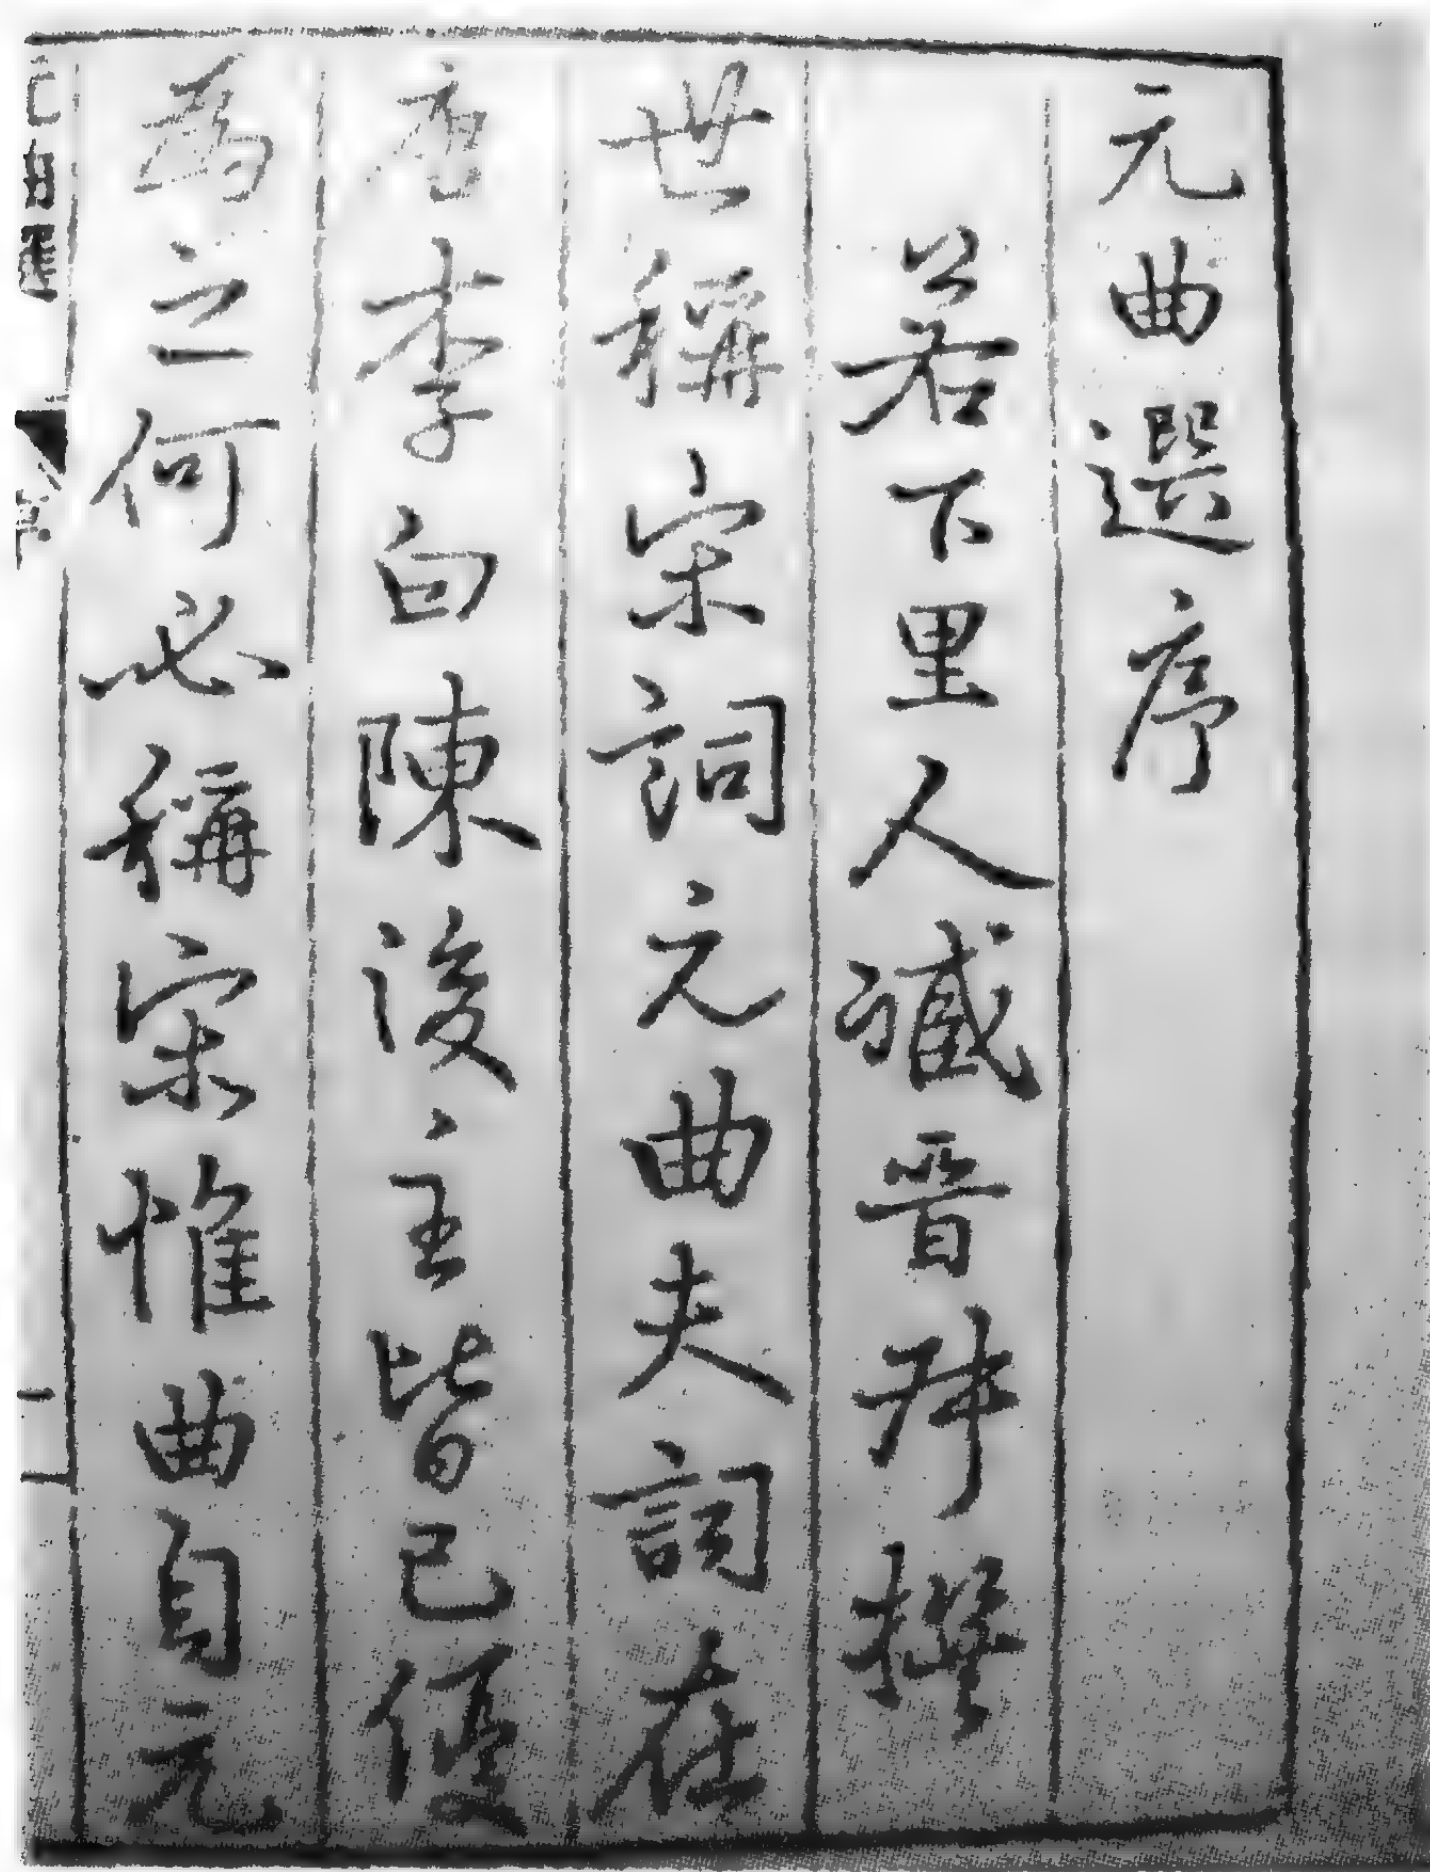 元曲選序
若下里人臧晉叔撰
世稱宋詞元曲夫詞在
唐李白陳後〻主皆已優
爲之何必稱宋惟曲自元